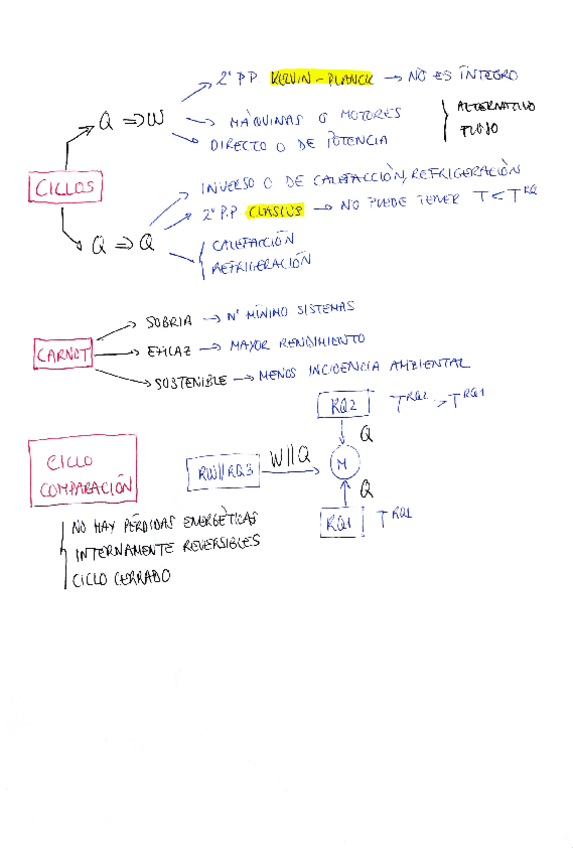 2º P.P KELVIN-PLANCK → NO ES ÍNTEGRO
Q ⇒ W
MÁQUINAS O MOTORES
ALTERNATIVO
FLUJO
DIRECTO O DE POTENCIA
CICLOS
INVERSO O DE CALEFACCIÓN, REFRIGERACIÓN
2º P.P CLASIUS → NO PUEDE TENER T < T^RQ
Q ⇒ Q
CALEFACCIÓN
REFRIGERACIÓN
SOBRIA → Nº MÍNIMO SISTEMAS
CARNOT
EFICAZ → MAYOR RENDIMIENTO
SOSTENIBLE → MENOS INCIDENCIA AMBIENTAL
RQ2 T^RQ2 > T^RQ1
Q
CICLO
COMPARACIÓN
RW//RQ3 W//Q M
Q
RQ1 T^RQ1
NO HAY PÉRDIDAS ENERGÉTICAS
INTERNAMENTE REVERSIBLES
CICLO CERRADO